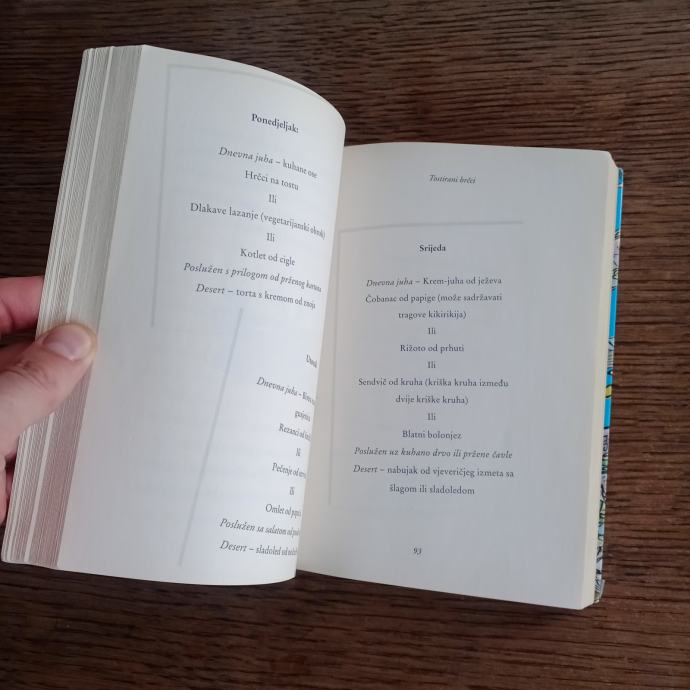 Ponedjeljak:
Dnevna juha – kuhane ose
Hrčci na tostu
Ili
Dlakave lazanje (vegetarijanski obrok)
Ili
Kotlet od cigle
Poslužen s prilogom od prženog kartona
Desert – torta s kremom od znoja
Dnevna juha –
gusjenica
Rezanci od
Ili
Pečenje od
Ili
Omlet od
Poslužen sa salatom od
Desert – sladoled od
Tostirani hrčci
Srijeda
Dnevna juha – Krem-juha od ježeva
Čobanac od papige (može sadržavati
tragove kikirikija)
Ili
Rižoto od prhuti
Ili
Sendvič od kruha (kriška kruha između
dvije kriške kruha)
Ili
Blatni bolonjez
Poslužen uz kuhano drvo ili pržene čavle
Desert – nabujak od vjeveričjeg izmeta sa
šlagom ili sladoledom
93